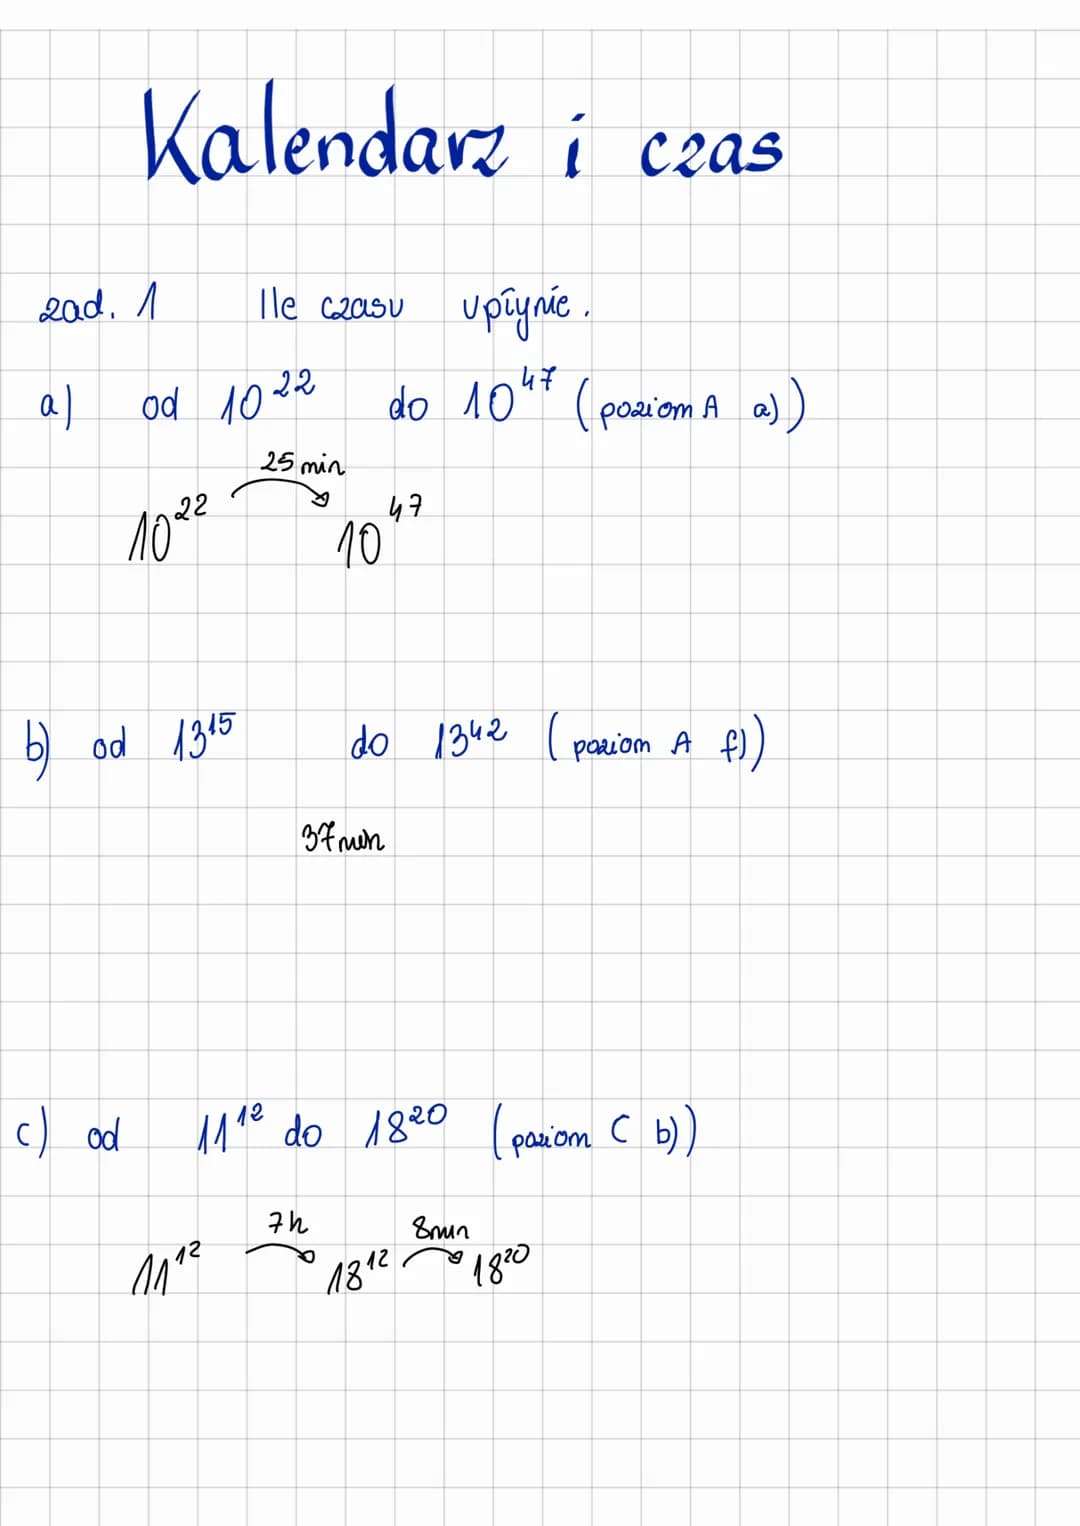 Kalendarz i czas
zad. 1 Ile czasu upłynie.
a) od 10²² do 10⁴⁷ (poziom A a))
25 min
10²² 10⁴⁷
b) od 13¹⁵ do 13⁴² (poziom A f))
37 min
c) od 11¹² do 18²⁰ (poziom C b))
7h 8min
11¹² 18¹² 18²⁰